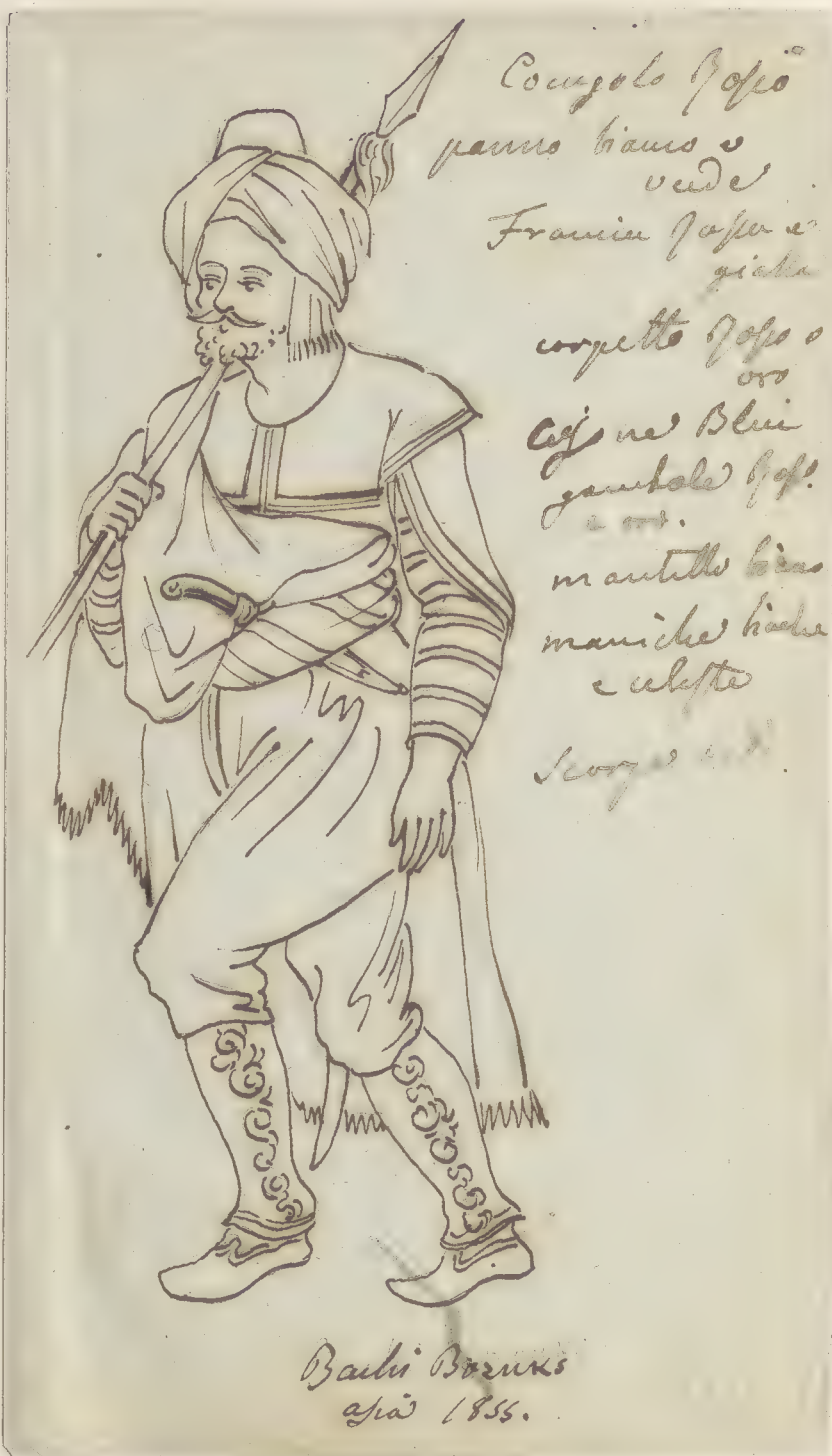 panno bianco e
verde
Francia rossa e
gialla
corpetto rosso e
oro
Blui
gambale ross.
e oro.
mantello bianco
maniche bianche
e celeste
Scarpe
Bachi Bozuks
asia 1855.